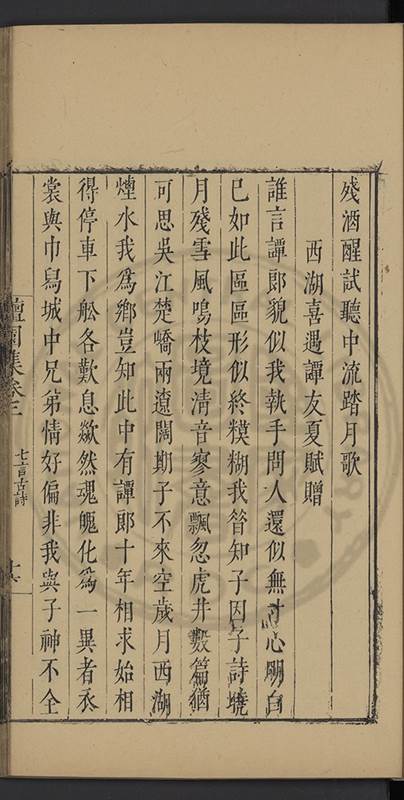 殘酒醒試聽中流踏月歌
西湖喜遇譚友夏賦贈
誰言譚郎貌似我執手問人還似無寸心明白
已如此區區形似終模糊我昔知子因子詩曉
月殘雪風鳴枝境清音寥意飄忽虎井數篇猶
可思吳江楚嶠兩遼闊期子不來空歲月西湖
煙水我為鄉豈知此中有譚郎十年相求始相
得停車下舩各歎息歘然魂魄化為一異者衣
裳與巾舄城中兄弟情好偏非我與子神不全
集卷三
七言古詩